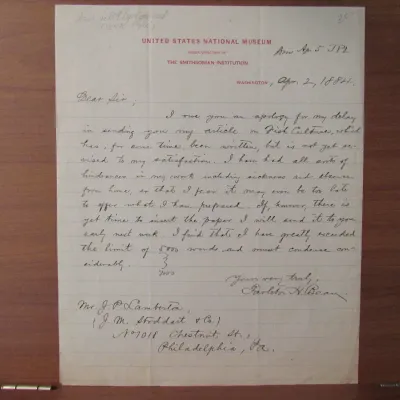 UNITED STATES NATIONAL MUSEUM
THE SMITHSONIAN INSTITUTION
WASHINGTON, Apr. 2, 1884.
Dear Sir,
I owe you an apology for my delay
in sending you my article on Fish Culture, which
has, for some time, been written, but is not yet re-
vised to my satisfaction. I have had all sorts of
hindrances in my work including sickness and absence
from home, so that I fear it may even be too late
to offer what I have prepared. If, however, there is
yet time to insert the paper I will send it to you
early next week. I find that I have greatly exceeded
the limit of 5000 words and must condense con-
siderably
Yours very truly,
Tarleton H. Bean
Mr. J. P. Lamberton
(J. M. Stoddart & Co.)
No 1018 Chestnut St.,
Philadelphia, Pa.